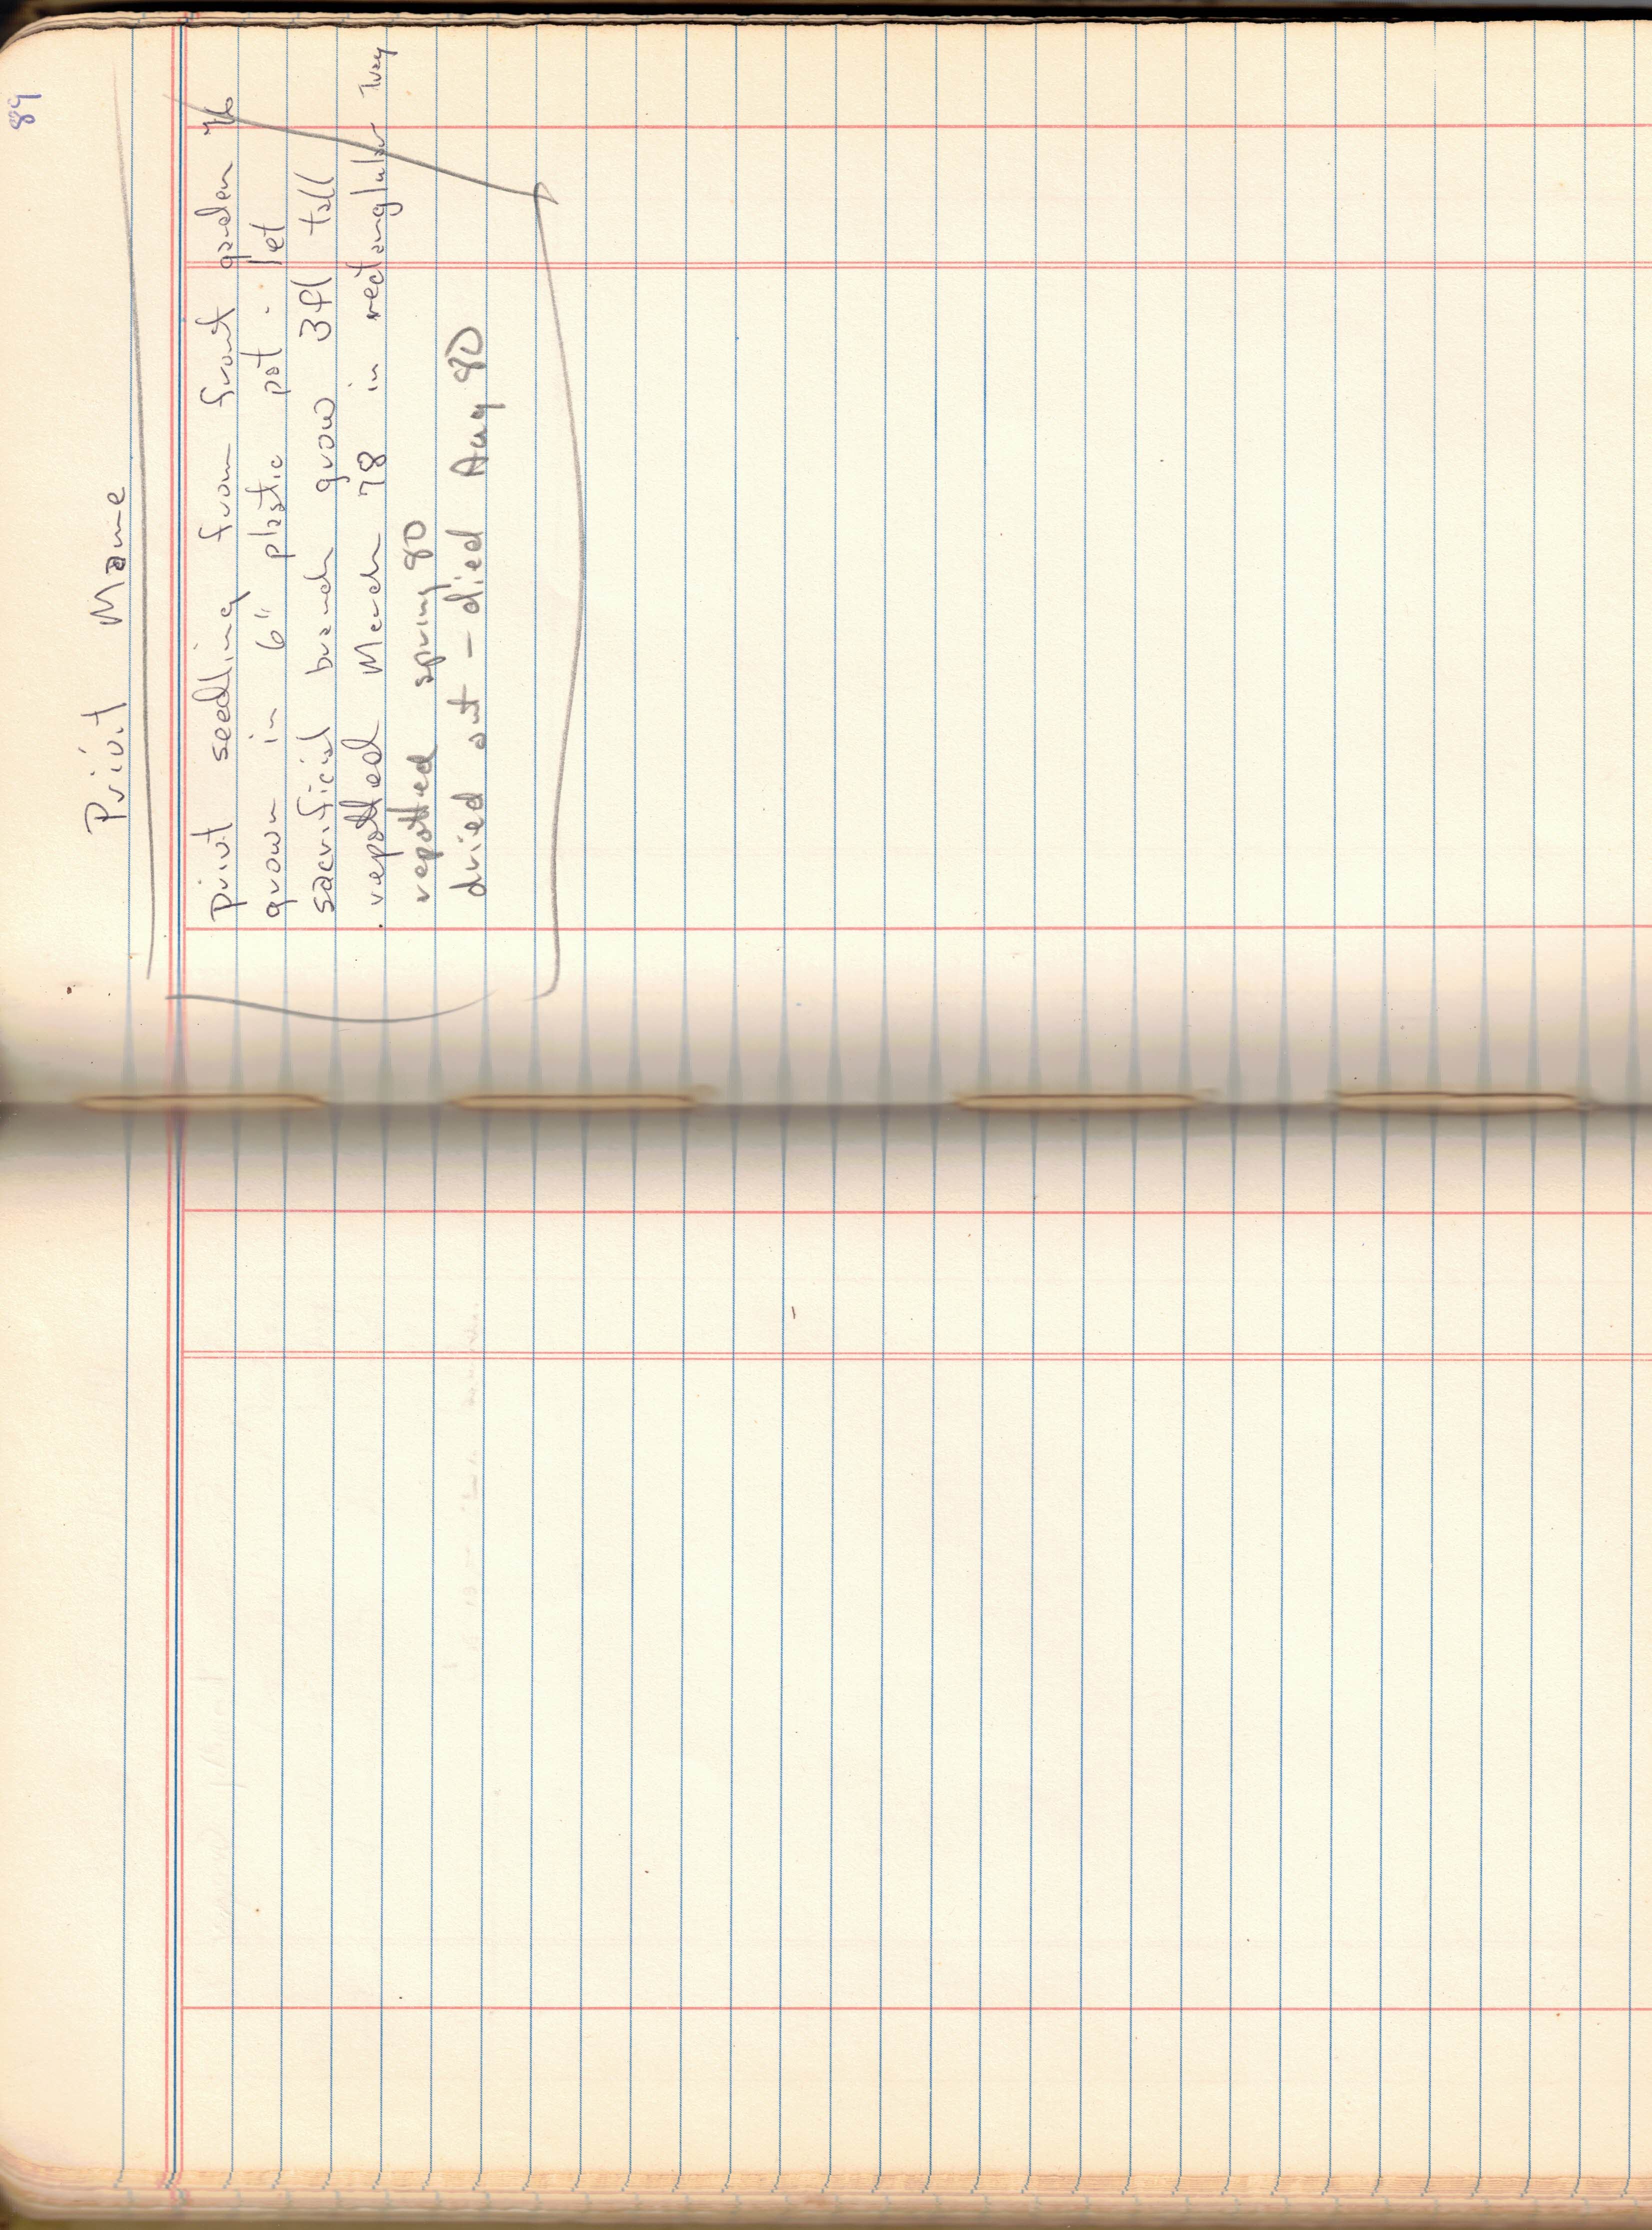 89
Privit Mame
privit seedling from front garden 76
grown in 6" plastic pot - let
sacrificial branch grow 3ft tall
repotted March 78 in rectanglular Tray
repotted spring 80
dried out - died Aug 80